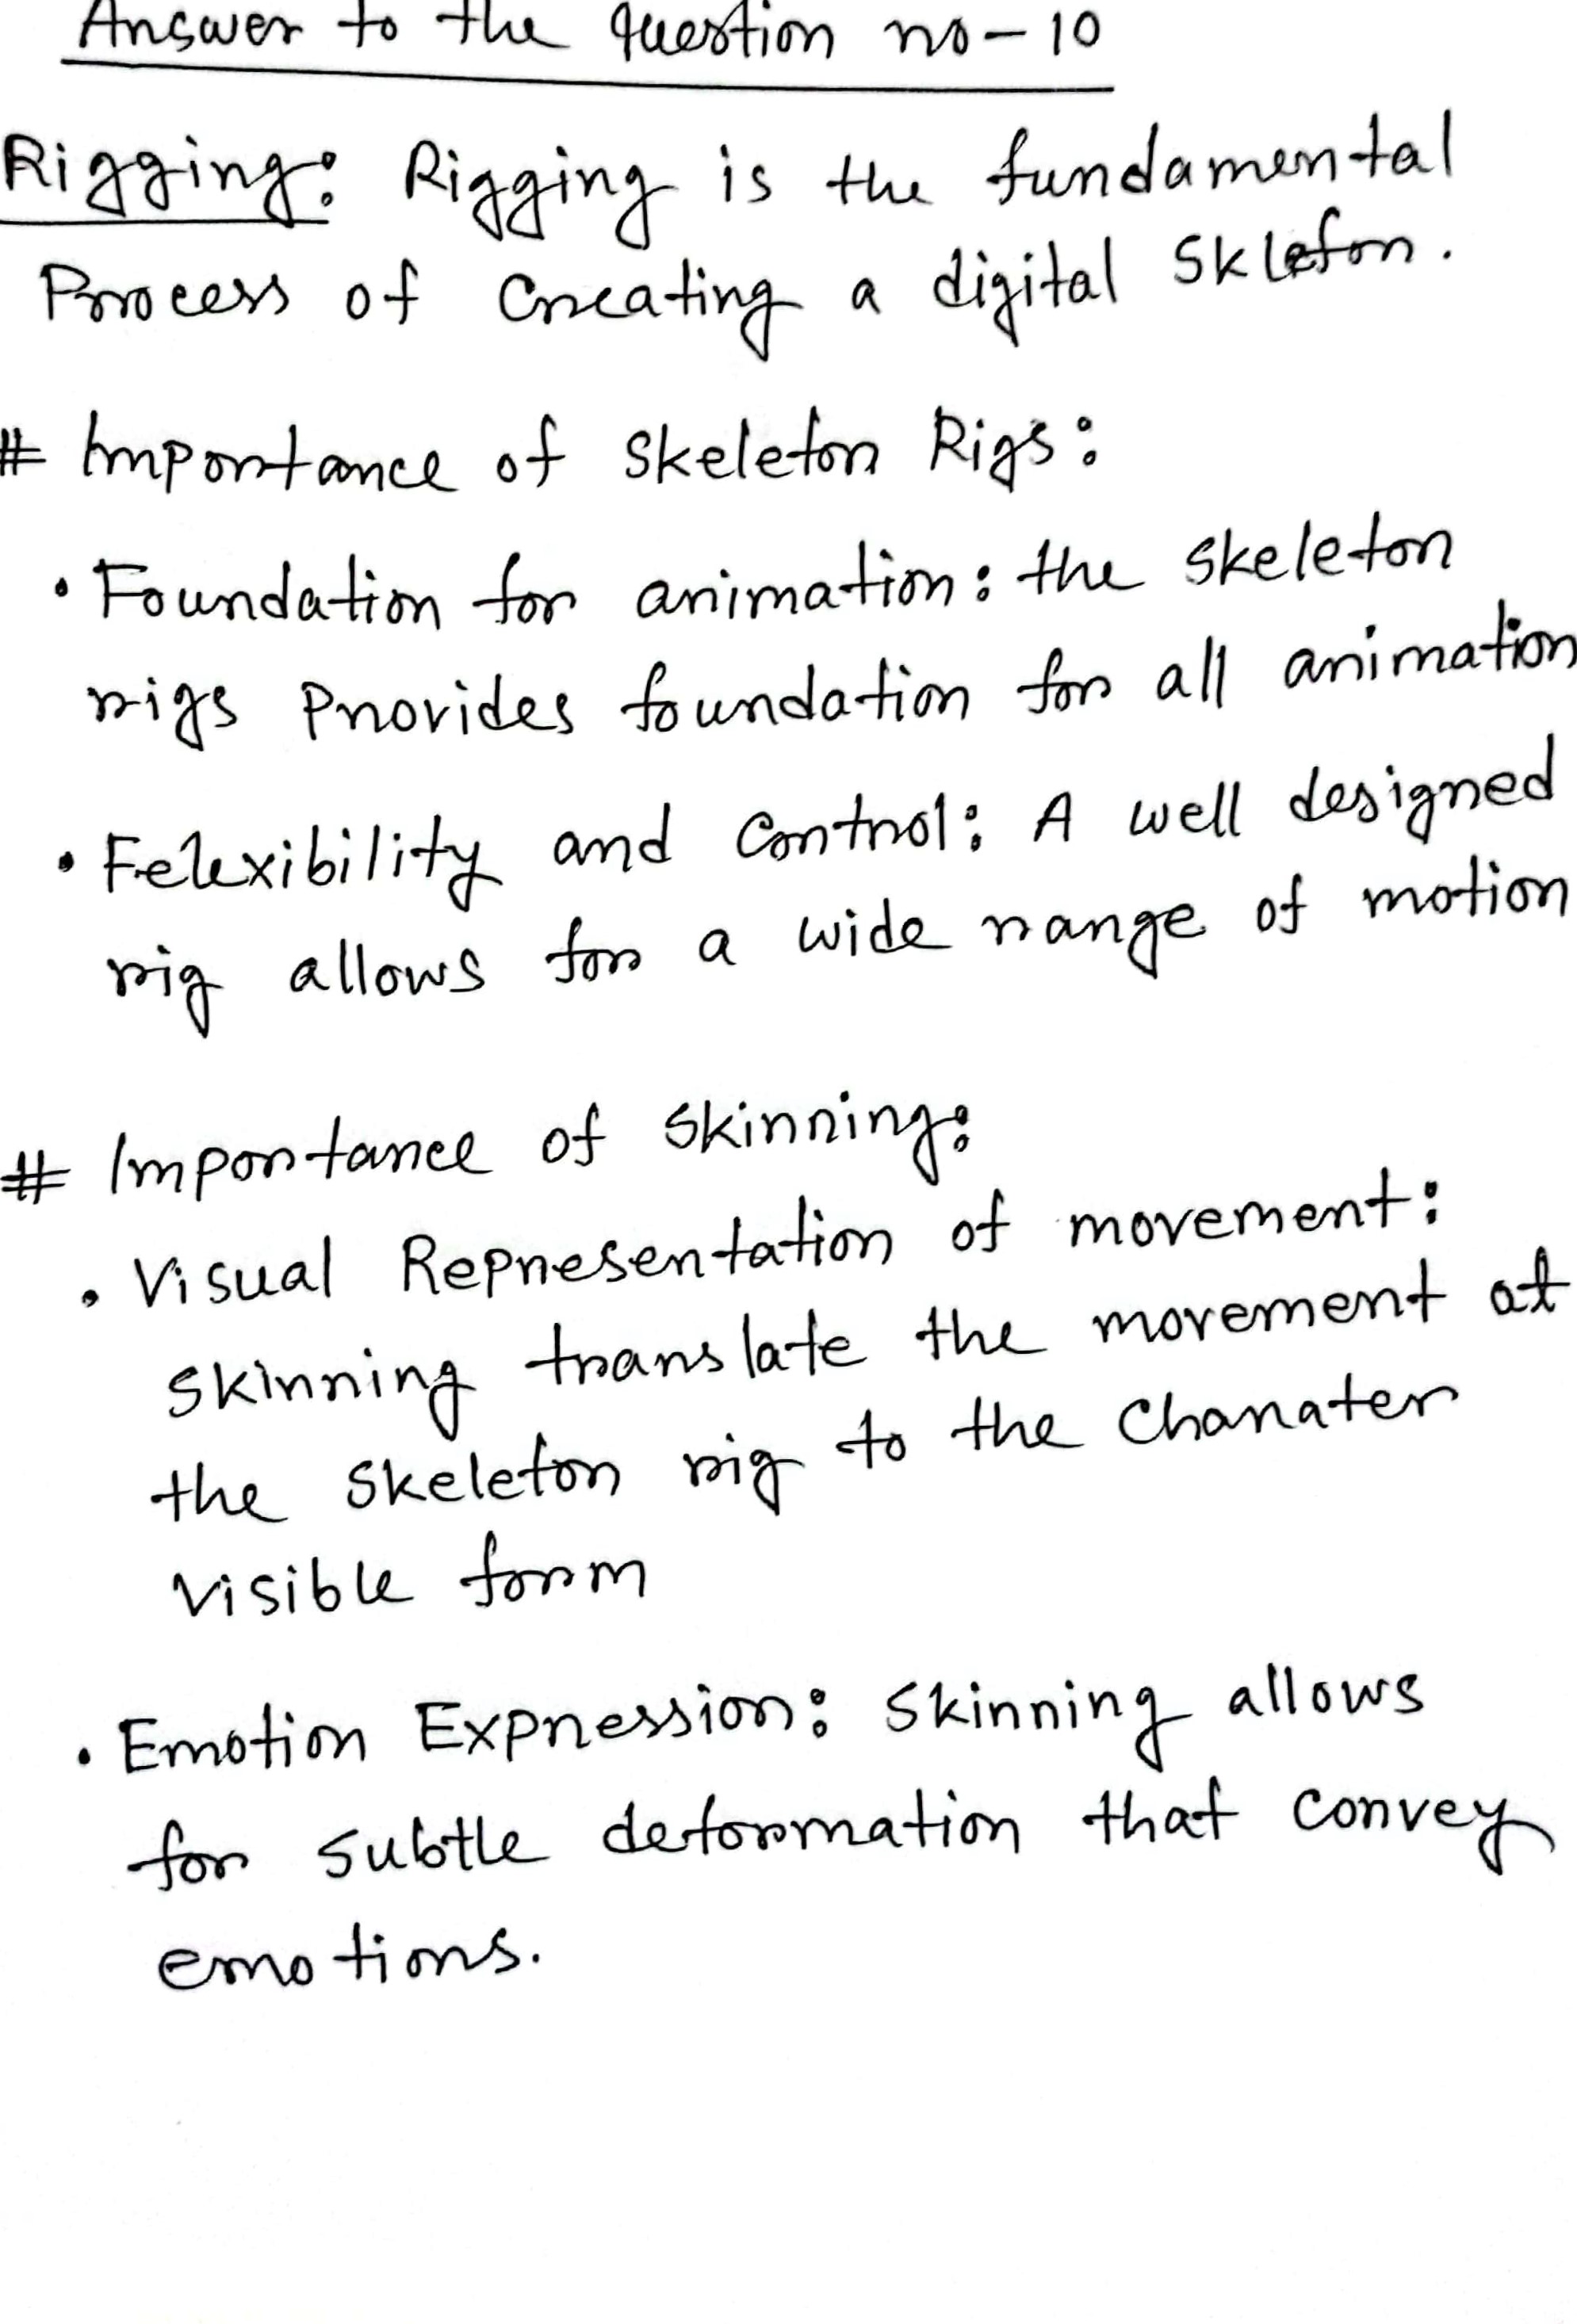 Answer to the question no-10
Rigging: Rigging is the fundamental
Process of Creating a digital Skleton.
# Importance of Skeleton Rigs:
• Foundation for animation: the skeleton
rigs provides foundation for all animation
• Felexibility and Control: A well designed
rig allows for a wide range of motion
# Importance of Skinning:
• Visual Representation of movement:
skinning translate the movement of
the skeleton rig to the Charater
visible form
• Emotion Expression: Skinning allows
for subtle deformation that convey
emotions.